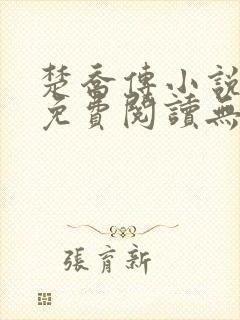 楚喬傳小說
免費閱讀無
張育新